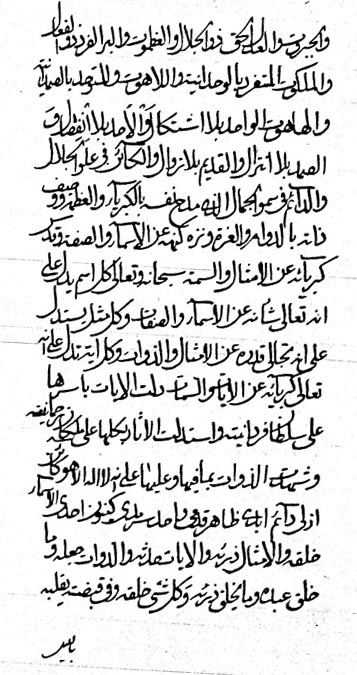 والجبروت والعدل الحق ذو الجلال والعظموت والبر الفرد ذو الفضال
والملكوت المتفرد بالوحدانية واللاهوت والمتوحد بالصمدانية
والهاهوت الواحد بلا اشتكال والاحد بلا انفصال و
الصمد بلا انزال والقديم بلا زوال والكائن في علو الجلال
والدائم في سمو الجمال الذي مدح نفسه بالكبرياء والعظمة ووصف
ذاته بالدوام والعزة ونزه كنهه عن الاسماء والصفة وتكبر
كبريائه عن الامثال والسمة سبحانه وتعالى كل اسم يدل على
انه تعالى شانه عن الاسماء والصفات وكل مثل يستدل
على انه تعالى قدره عن الامثال والذوات وكل اية تدل على انه
تعالى كبريائه عن الايات والسمات دلت الايات باسرها
على سلطان فردانيته واستدلت الاثار بكلها على مليك
وشهدت الذوات بما فيها وعليها على انه لا اله الا هو كان
ازلي دائم ابدي ظاهر
خلقه والامثال ذريه والايات عدته والذوات جعله وما
خلق عبده وما يخلق ذريه وكل شئ خلقه وفي قبضته يقلبه